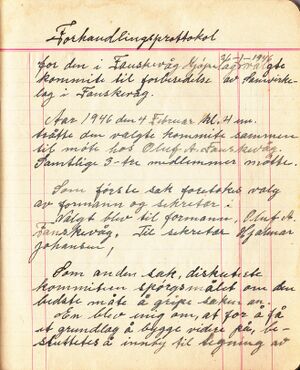 Forhandlingsprottokol
31-1-1946
for den i Fanskevåg valgte
kommite til forberedelse av samvirke-
lag i Fanskevåg.
Aar 1946 den 4 Februar kl. 4 em.
trådte den valgte kommite sammen
til møte hos Oluf A. Fanskevåg.
Samtlige 3-tre medlemmer møtte.
Som første sak foretokes valg
av formann og sekretær:
Valgt blev til formann, Oluf A.
Fanskevåg. Til sekretær Hjalmar
Johansen,
Som anden sak, diskuterte
kommiteen spørgsmålet om den
bedste måte å gripe saken an.
En blev enig om, at for å få
et grundlag å bygge videre på, be-
sluttetes å innby til tegning av